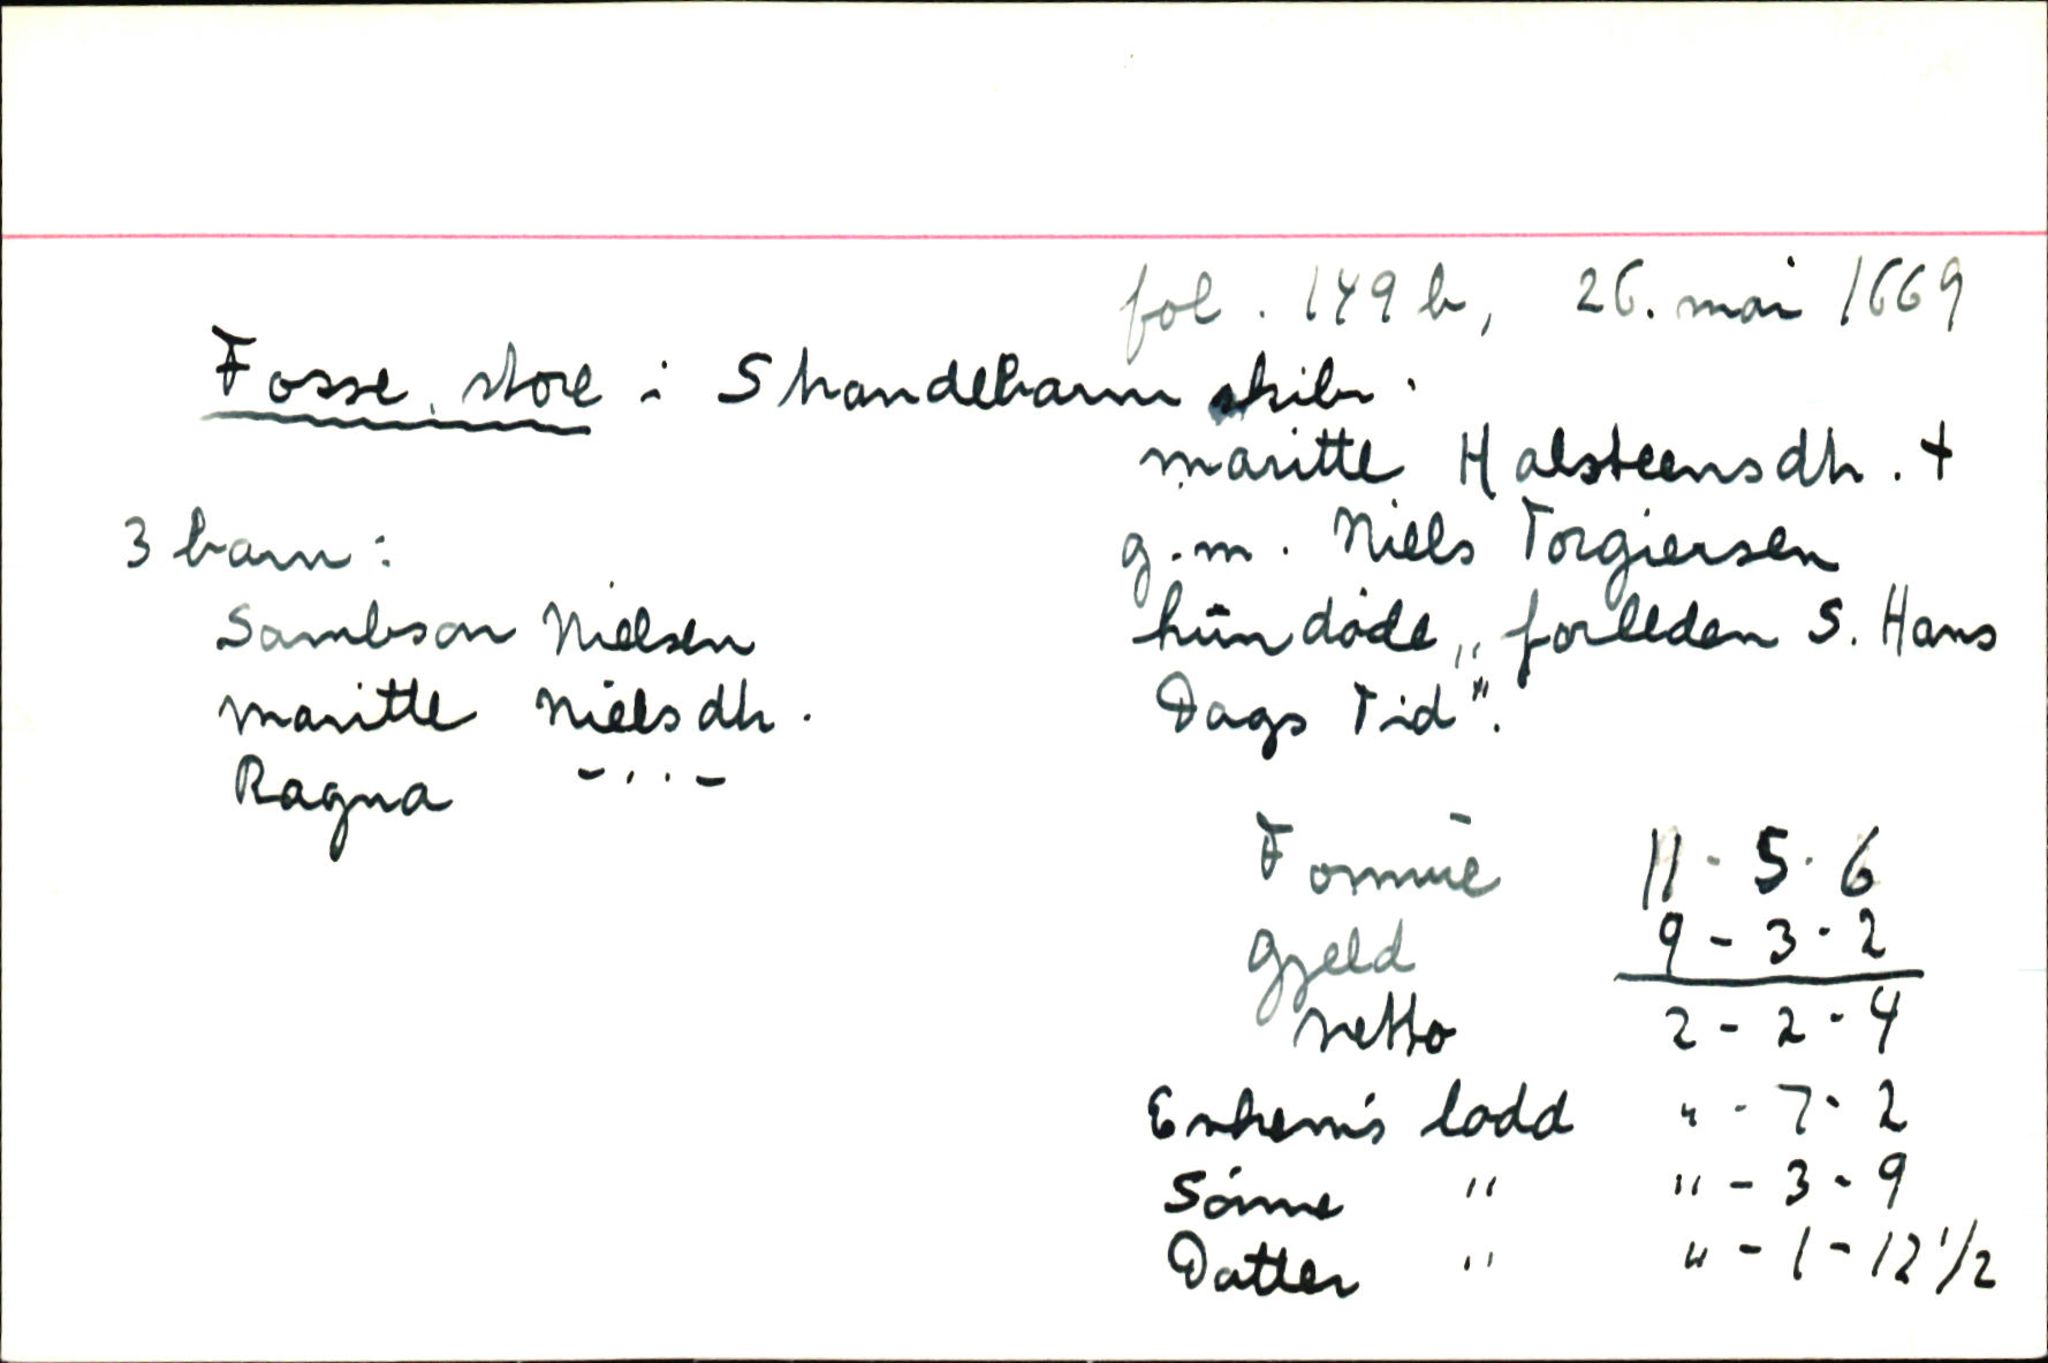 fol. 149 b, 26. mai 1669
Fosse, store i Strandebarm skibr.
Maritte Halsteensdtr. +
g.m. Niels Torgiersen
hŭn døde „forleden S. Hans
Dags Tid".
3 barn:
Sambson Nielsen
Maritte Nielsdtr.
Ragna -„-
Formŭe 11 - 5 - 6
Gjeld 9 - 3 - 2
Netto 2 - 2 - 4
Enkem's lodd " - 7 - 2
Sønne " " - 3 - 9
Datter " " - 1 - 12 1/2